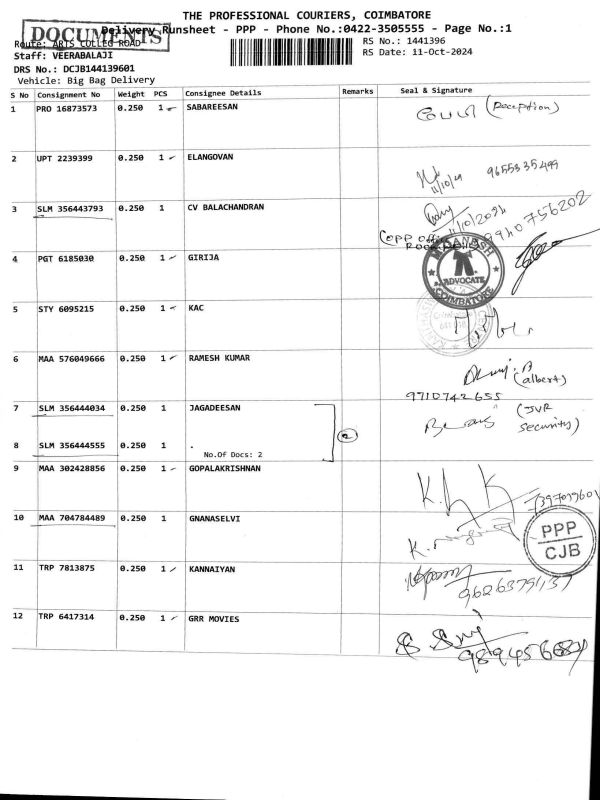 THE PROFESSIONAL COURIERS, COIMBATORE
DOCUMENTS
Delivery Runsheet - PPP - Phone No.:0422-3505555 - Page No.:1
Route: ARTS COLLEG ROAD
RS No.: 1441396
Staff: VEERABALAJI
RS Date: 11-Oct-2024
DRS No.: DCJB144139601
Vehicle: Big Bag Delivery
S No Consignment No Weight PCS Consignee Details Remarks Seal & Signature
1 PRO 16873573 0.250 1 SABAREESAN
(Reception)
2 UPT 2239399 0.250 1 ELANGOVAN
11/10/24 9655335499
3 SLM 356443793 0.250 1 CV BALACHANDRAN
11/10/2024
9940756202
4 PGT 6185030 0.250 1 GIRIJA
ADVOCATE
COIMBATORE
5 STY 6095215 0.250 1 KAC
6 MAA 576049666 0.250 1 RAMESH KUMAR
(albert)
9710742655
7 SLM 356444034 0.250 1 JAGADEESAN
(JVR
security)
2
8 SLM 356444555 0.250 1 .
No.Of Docs: 2
9 MAA 302428856 0.250 1 GOPALAKRISHNAN
10 MAA 704784489 0.250 1 GNANASELVI
PPP
CJB
11 TRP 7813875 0.250 1 KANNAIYAN
12 TRP 6417314 0.250 1 GRR MOVIES